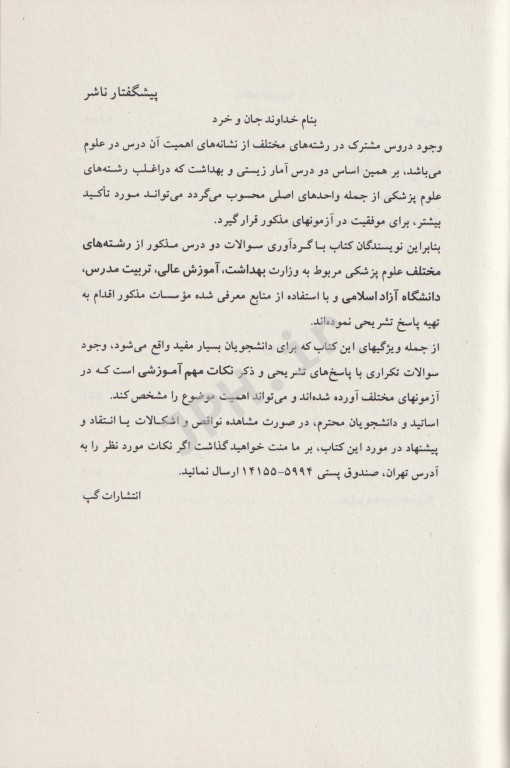 پیشگفتار ناشر
بنام خداوند جان و خرد
وجود دروس مشترک در رشته‌های مختلف از نشانه‌های اهمیت آن درس در علوم
می‌باشد، بر همین اساس دو درس آمار زیستی و بهداشت که دراغلب رشته‌های
علوم پزشکی از جمله واحدهای اصلی محسوب می‌گردد می‌تواند مورد تأکید
بیشتر، برای موفقیت در آزمونهای مذکور قرار گیرد.
بنابراین نویسندگان کتاب با گردآوری سوالات دو درس مذکور از رشته‌های
مختلف علوم پزشکی مربوط به وزارت بهداشت، آموزش عالی، تربیت مدرس،
دانشگاه آزاد اسلامی و با استفاده از منابع معرفی شده مؤسسات مذکور اقدام به
تهیه پاسخ تشریحی نموده‌اند.
از جمله ویژگیهای این کتاب که برای دانشجویان بسیار مفید واقع می‌شود، وجود
سوالات تکراری با پاسخ‌های تشریحی و ذکر نکات مهم آموزشی است که در
آزمونهای مختلف آورده شده‌اند و می‌تواند اهمیت موضوع را مشخص کند.
اساتید و دانشجویان محترم، در صورت مشاهده نواقص و اشکالات یا انتقاد و
پیشنهاد در مورد این کتاب، بر ما منت خواهید گذاشت اگر نکات مورد نظر را به
آدرس تهران، صندوق پستی ۵۹۹۴-۱۴۱۵۵ ارسال نمائید.
انتشارات گپ
JPH.ir